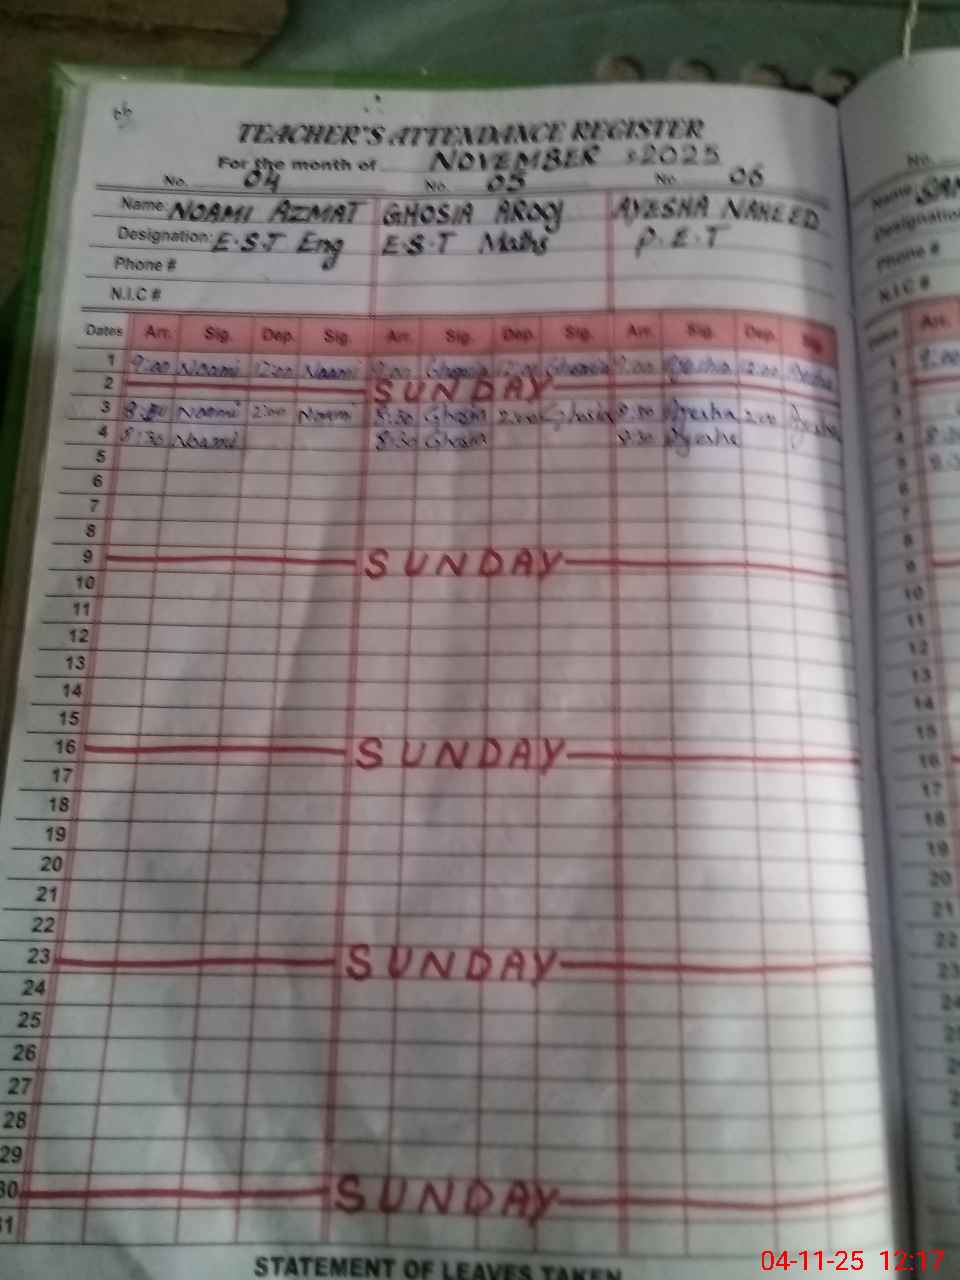 TEACHER'S ATTENDANCE REGISTER
For the month of NOVEMBER 2025
No. 04 No. 05 No. 06
Name: NOAMI AZMAT GHOSIA AROOJ AYESHA NAHEED
Designation: E.S.T Eng E.S.T Maths P.E.T
Phone #
N.I.C #
Dates Arr. Sig. Dep. Sig. Arr. Sig. Dep. Sig. Arr. Sig. Dep. Sig.
1 9:00 Noami 12:00 Noami 9:00 Ghosia 12:00 Ghosia 9:00 Ayesha 12:00 Ayesha
2 SUNDAY
3 Noami 2:00 Noami 8:30 Ghosia 2:00 Ghosia 8:30 Ayesha 2:00 Ayesha
4 8:30 Noami 8:30 8:30 Ayesha
5
6
7
8
9 SUNDAY
10
11
12
13
14
15
16 SUNDAY
17
18
19
20
21
22
23 SUNDAY
24
25
26
27
28
29
30 SUNDAY
31
STATEMENT OF LEAVES TAKEN
No.
Name
Designation
Phone #
N.I.C #
Dates Arr.
1 9:00
2
3
4
5
6
7
8
9
10
11
12
13
14
15
16
17
18
19
20
21
22
23
24
04-11-25 12:17